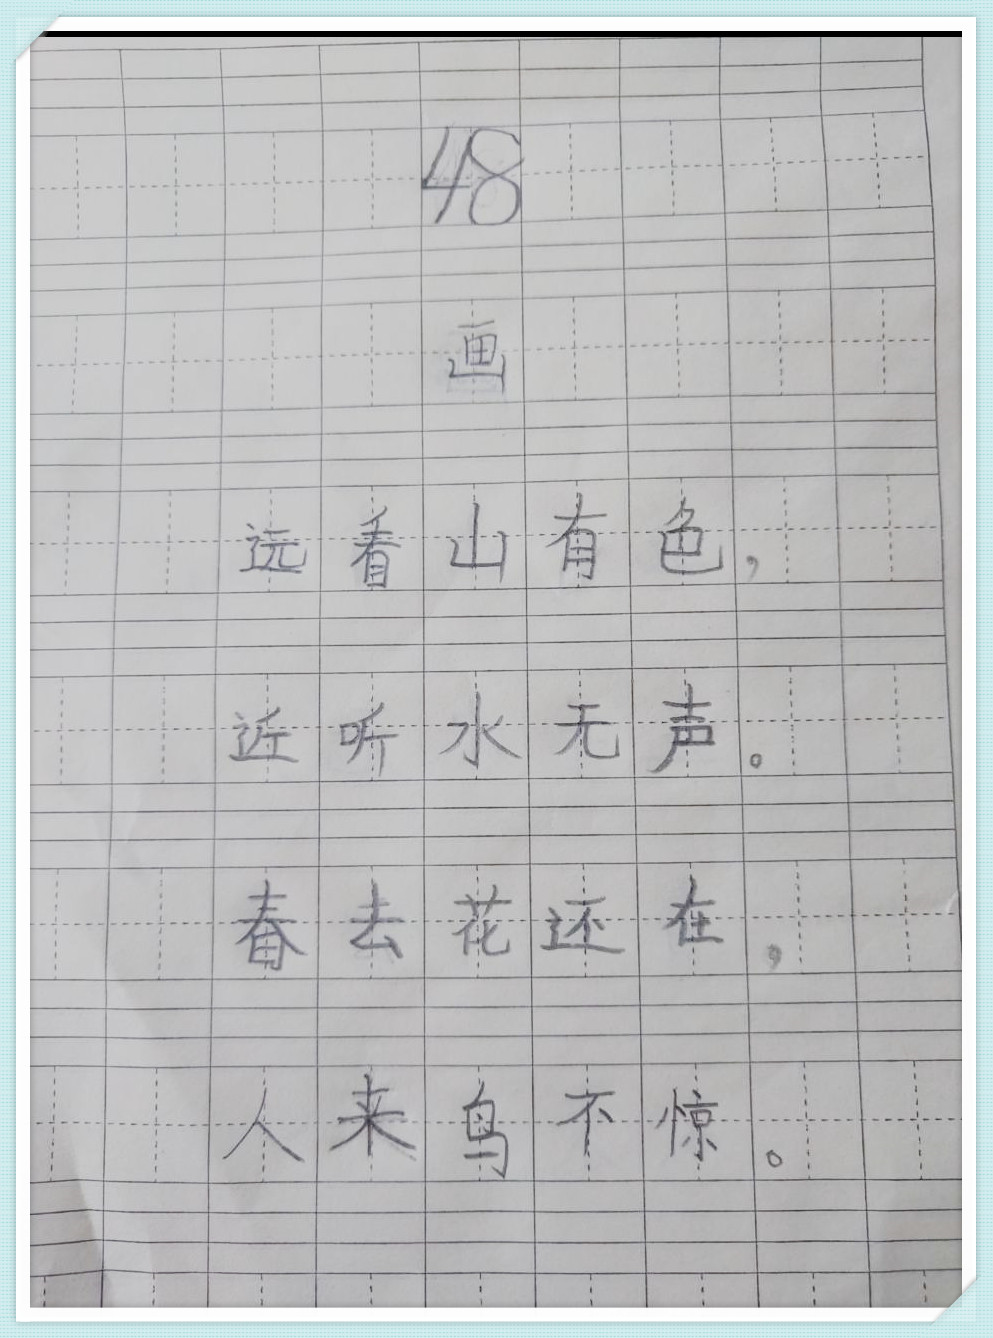 48
画
远看山有色，
近听水无声。
春去花还在，
人来鸟不惊。